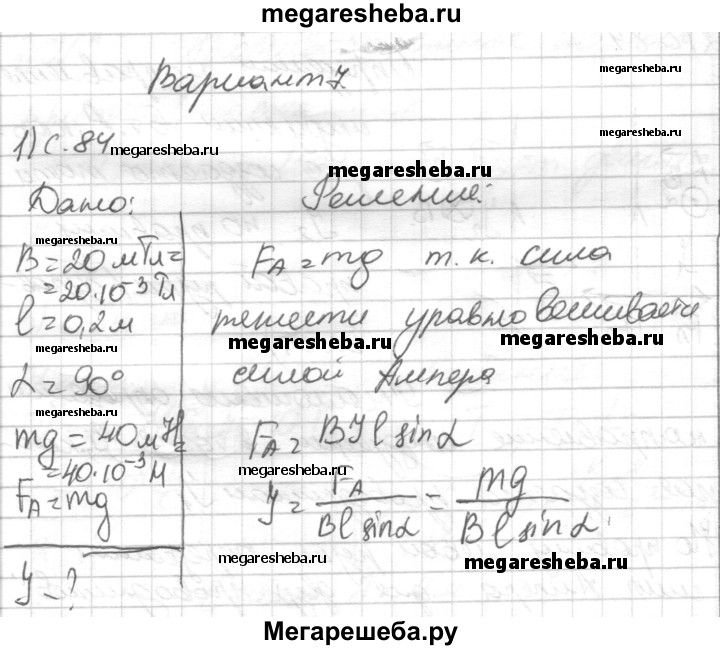 megaresheba.ru
Вариант 7.
megaresheba.ru
1) с. 84
megaresheba.ru
megaresheba.ru
megaresheba.ru
Дано:
Решение:
megaresheba.ru
B = 20 мТл =
= 20·10⁻³ Тл
l = 0,2 м
megaresheba.ru
α = 90°
megaresheba.ru
mg = 40 мН =
= 40·10⁻³ Н
F_A = mg
J – ?
F_A = mg т. к. сила
тяжести уравновешивается
megaresheba.ru
megaresheba.ru
силой Ампера
megaresheba.ru
F_A = BJl sinα
megaresheba.ru
J = F_A / Bl sinα = mg / Bl sinα.
megaresheba.ru
megaresheba.ru
Мегарешеба.ру